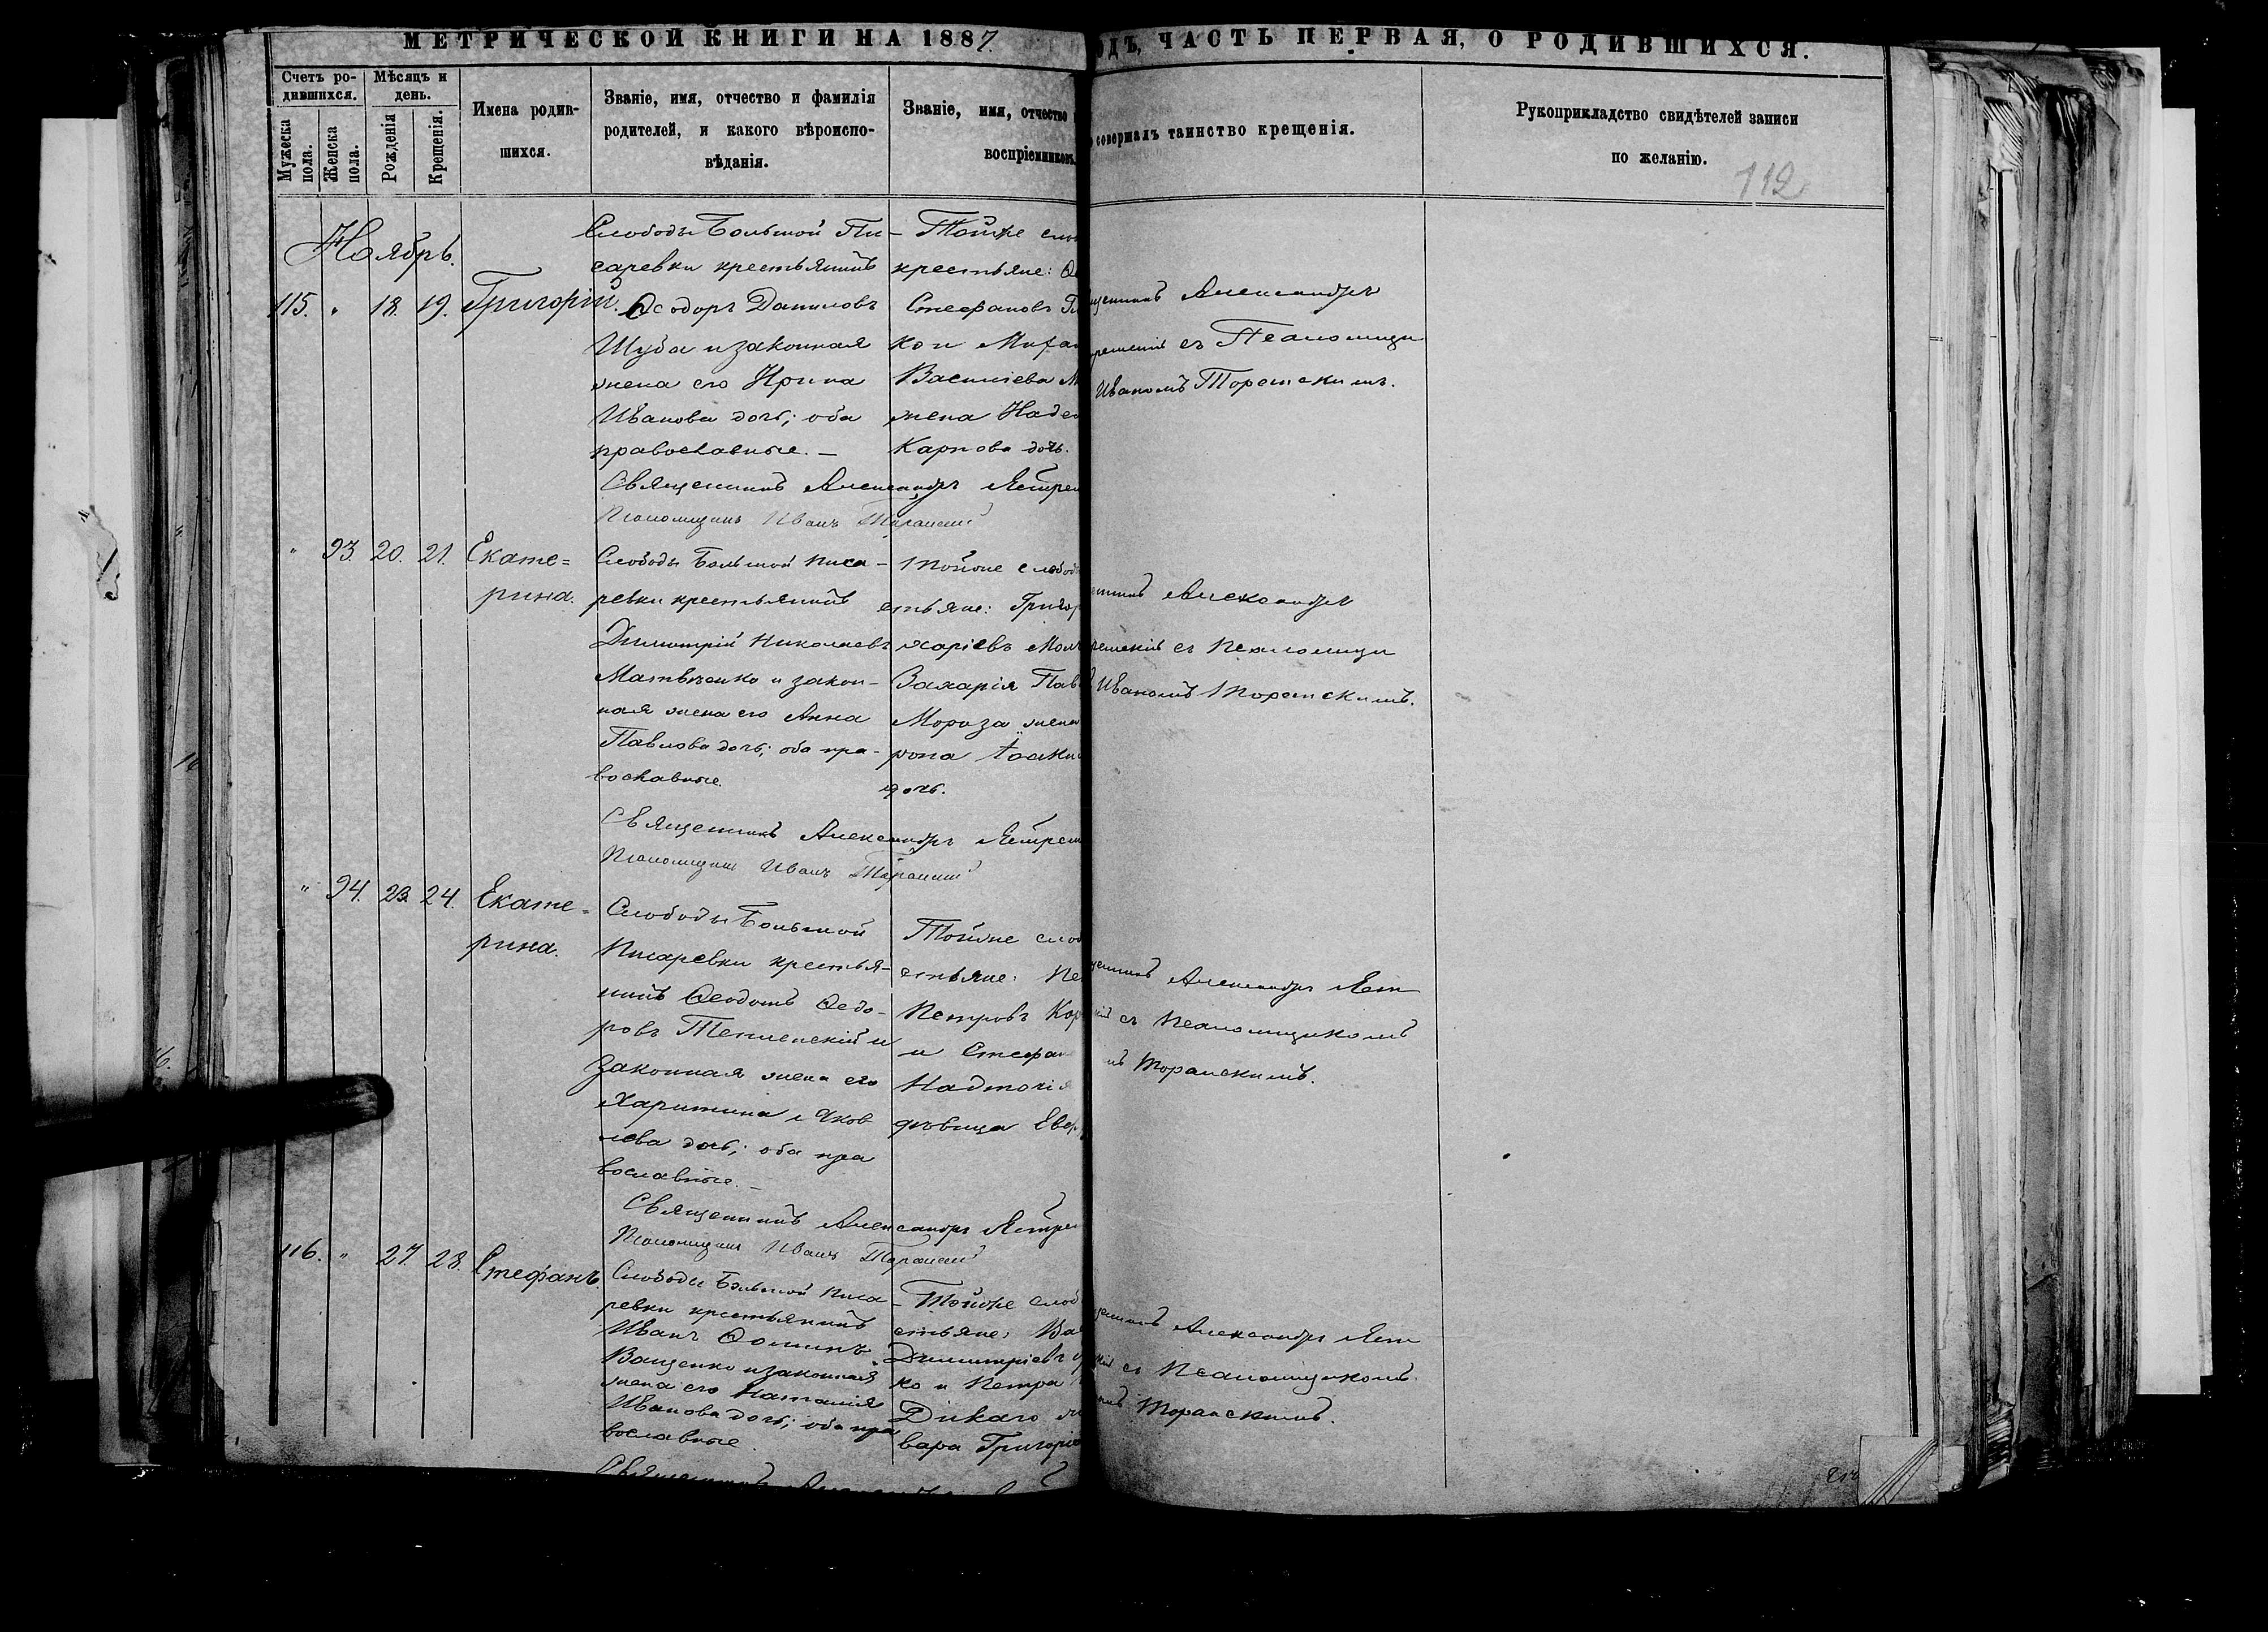 МЕТРИЧЕСКОЙ КНИГИ НА 1887
ОДЪ, ЧАСТЬ ПЕРВАЯ, О РОДИВШИХСЯ.
Счетъ ро-
дившихся.
Мужеска
пола.
Женска
пола.
Мѣсяцъ и
день.
Рожденія
Крещенія.
Имена родив-
шихся.
Званіе, имя, отчество и фамилія
родителей, и какого вѣроиспо-
вѣданія.
Званіе, имя, отчество
воспріемниковъ.
совершалъ таинство крещенія.
Рукоприкладство свидѣтелей записи
по желанію.
112
Ноябрь.
115. " 18. 19. Григорій.
Слободы Большой Пи-
саревки крестьянинъ
Ѳеодоръ Даниловъ
Шуба и законная
жена его Ирина
Иванова дочь; оба
православные. —
Тойже сло
крестьяне:
Стефановъ
ко и Миха
Васильева
жена Наде
Карпова дочь.
щенникъ Александръ
съ Псаломщи
Иваномъ Торанскимъ.
Священникъ Александръ Ястрем
Псаломщикъ Иванъ Торанскій
" 93. 20. 21. Екате=
рина.
Слободы Большой Писа-
ревки крестьянинъ
Димитрій Николаевъ
Матвѣенко и закон-
ная жена его Анна
Павлова дочь; оба пра-
вославные.
Тойже слобод
стьяне: Григор
харіевъ
Захарія Пав
Мороза жена
рона Іоаки
дочь.
енникъ Александръ
ремскій съ Псаломщи
Иваномъ Торанскимъ.
Священникъ Александръ Ястрем
Псаломщикъ Иванъ Торанскій
" 94. 23. 24. Екате=
рина.
Слободы Большой
Писаревки крестья-
нинъ Ѳеодотъ Ѳедо-
ровъ Тепленскій и
законная жена его
Харитина Яков
лева дочь; оба пра
вославные. —
Тойже слоб
стьяне: Пе
Петровъ Кор
и Стефан
Надточія
дѣвица Евф
щенникъ Александръ Яст
съ Псаломщикомъ
Торанскимъ.
Священникъ Александръ Ястрем
Псаломщикъ Иванъ Торанскій
116. " 27. 28. Стефанъ.
Слободы Большой Писа-
ревки крестьянинъ
Иванъ Ѳоминъ
Ващенко и законная
жена его Наталія
Иванова дочь; оба пра
вославные.
Тойже слоб
стьяне: Ва
Димитріевъ
ко и Петра
Дикаго
вара Григорі
щенникъ Александръ Яст
съ Псаломщикомъ
Торанскимъ.
Священникъ